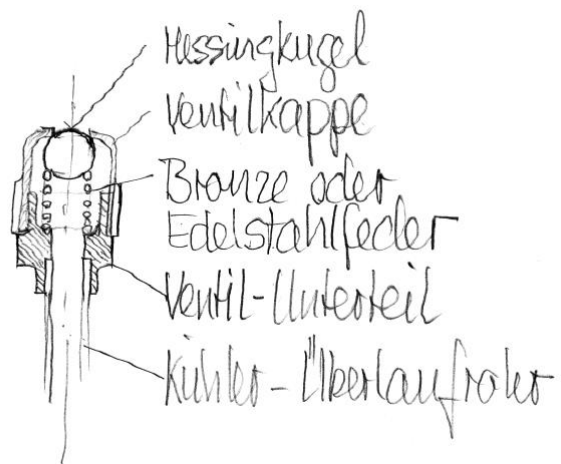 Messingkugel
Ventilkappe
Bronze oder
Edelstahlfeder
Ventil-Unterteil
Kühler-Überlaufrohr